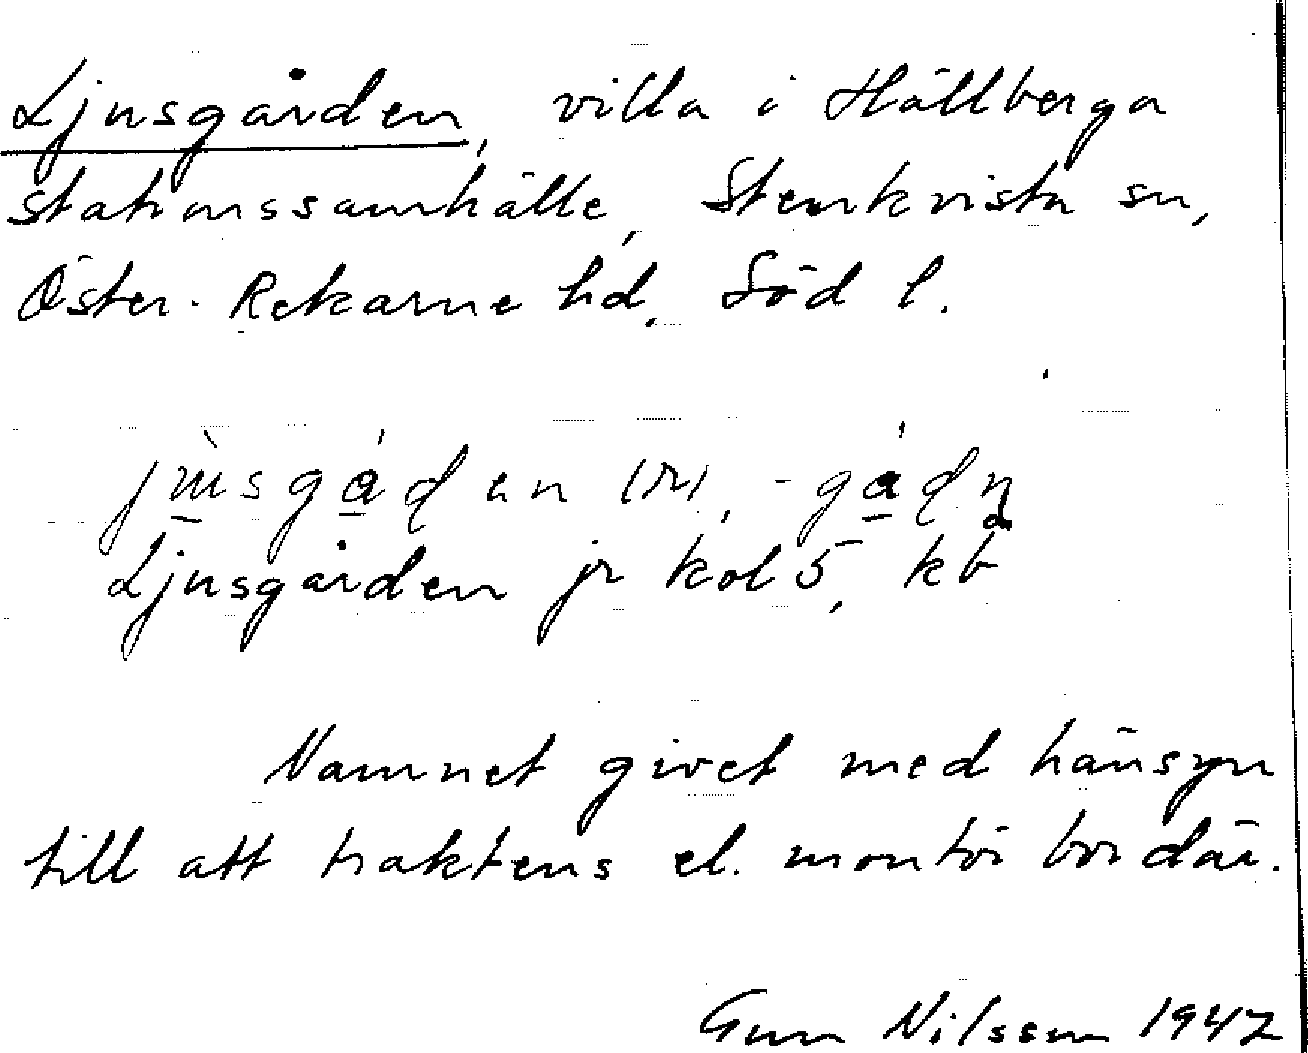 Ljusgården, villa i Hällberga
stationssamhälle, Stenkvista sn,
Öster-Rekarne hd, Söd l.
Ljusgården jr kol 5, kb
Namnet givet med hänsyn
till att traktens el. montör bor där.
Gun Nilsson 1947